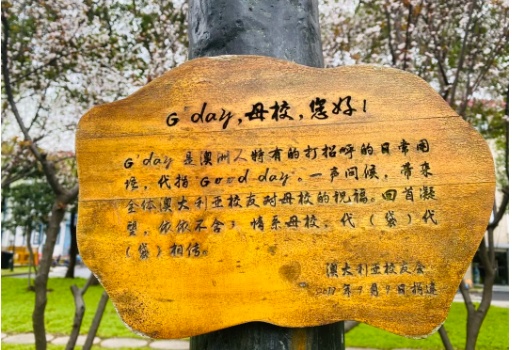 G'day,母校,您好!
G'day 是澳洲人特有的打招呼的日常用
语,代指 Good day。一声问候,带来
全体澳大利亚校友对母校的祝福。回首凝
望,依依不舍;情系母校,代(袋)代
(袋)相传。
澳大利亚校友会
年9月9日捐建